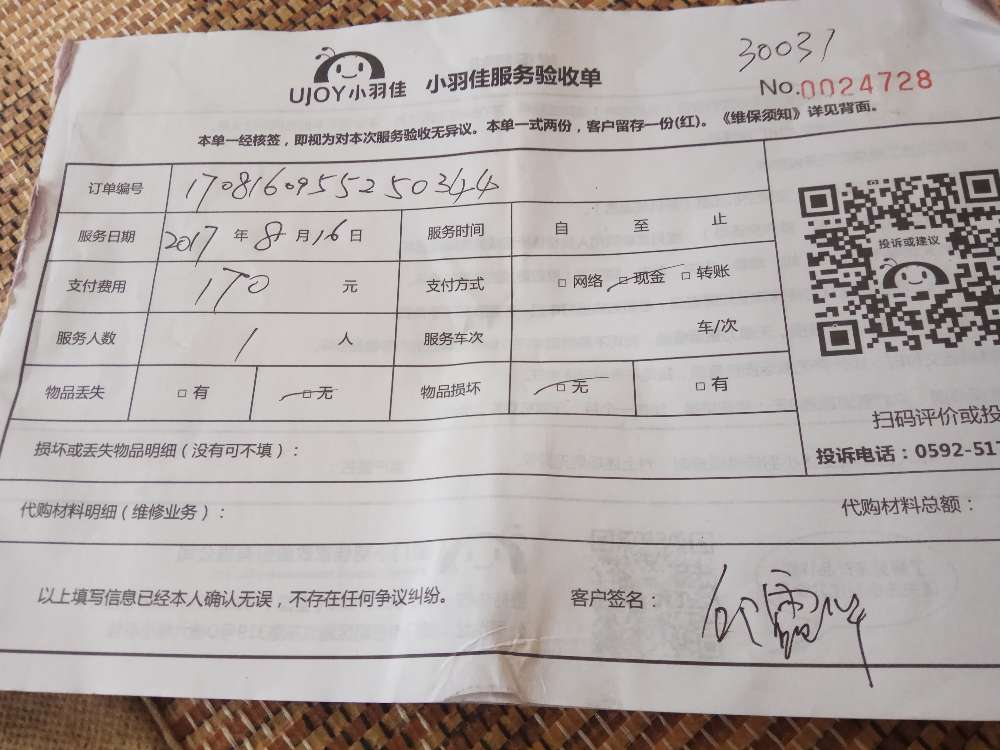 30031
UJOY小羽佳 小羽佳服务验收单
No.0024728
本单一经核签，即视为对本次服务验收无异议。本单一式两份，客户留存一份(红)。《维保须知》详见背面。
订单编号 1708160955250344
服务日期 2017 年 8 月 16 日 服务时间 自 至 止
投诉或建议
支付费用 170 元 支付方式 □ 网络 □ 现金 □ 转账
服务人数 1 人 服务车次 车/次
物品丢失 □ 有 □ 无 物品损坏 □ 无 □ 有
扫码评价或投
损坏或丢失物品明细（没有可不填）：
投诉电话：0592-51
代购材料明细（维修业务）： 代购材料总额：
以上填写信息已经本人确认无误，不存在任何争议纠纷。 客户签名：